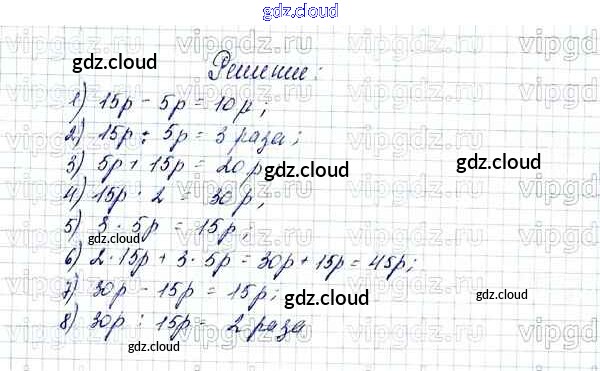 gdz.cloud
vipgdz.ru vipgdz.ru vipgdz.ru vipgd
gdz.cloud
Решение:
1) 15р - 5р = 10р;
2) 15р : 5р = 3 раза;
3) 5р + 15р = 20р
gdz.cloud gdz.cloud
4) 15р · 2 = 30р;
5) 3 · 5р = 15р;
gdz.cloud
6) 2 · 15р + 3 · 5р = 30р + 15р = 45р;
7) 30р - 15р = 15р;
gdz.cloud gdz.cloud
8) 30р : 15р = 2 раза
gdz.cloud